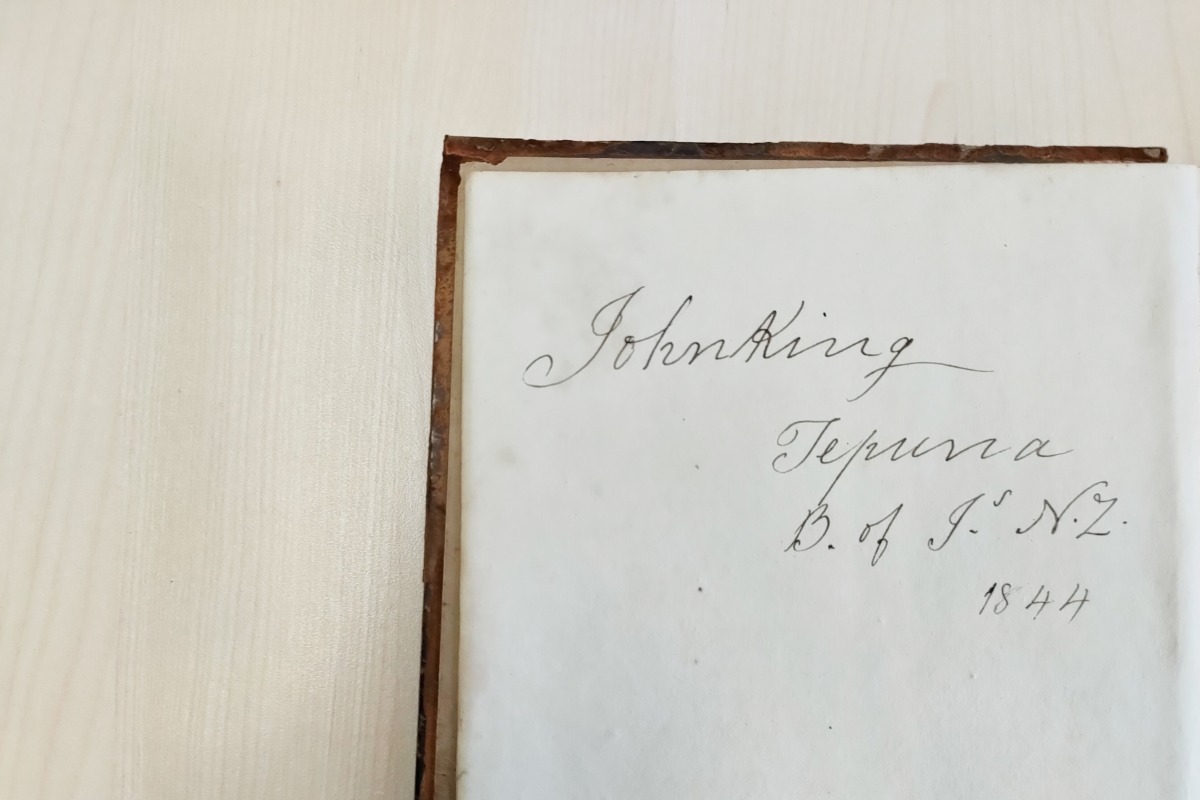 John King
Tepuna
B. of I.s N.Z.
1844